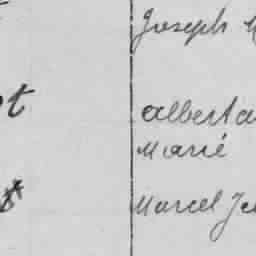 Joseph
t albert
Marié
Marcel Je